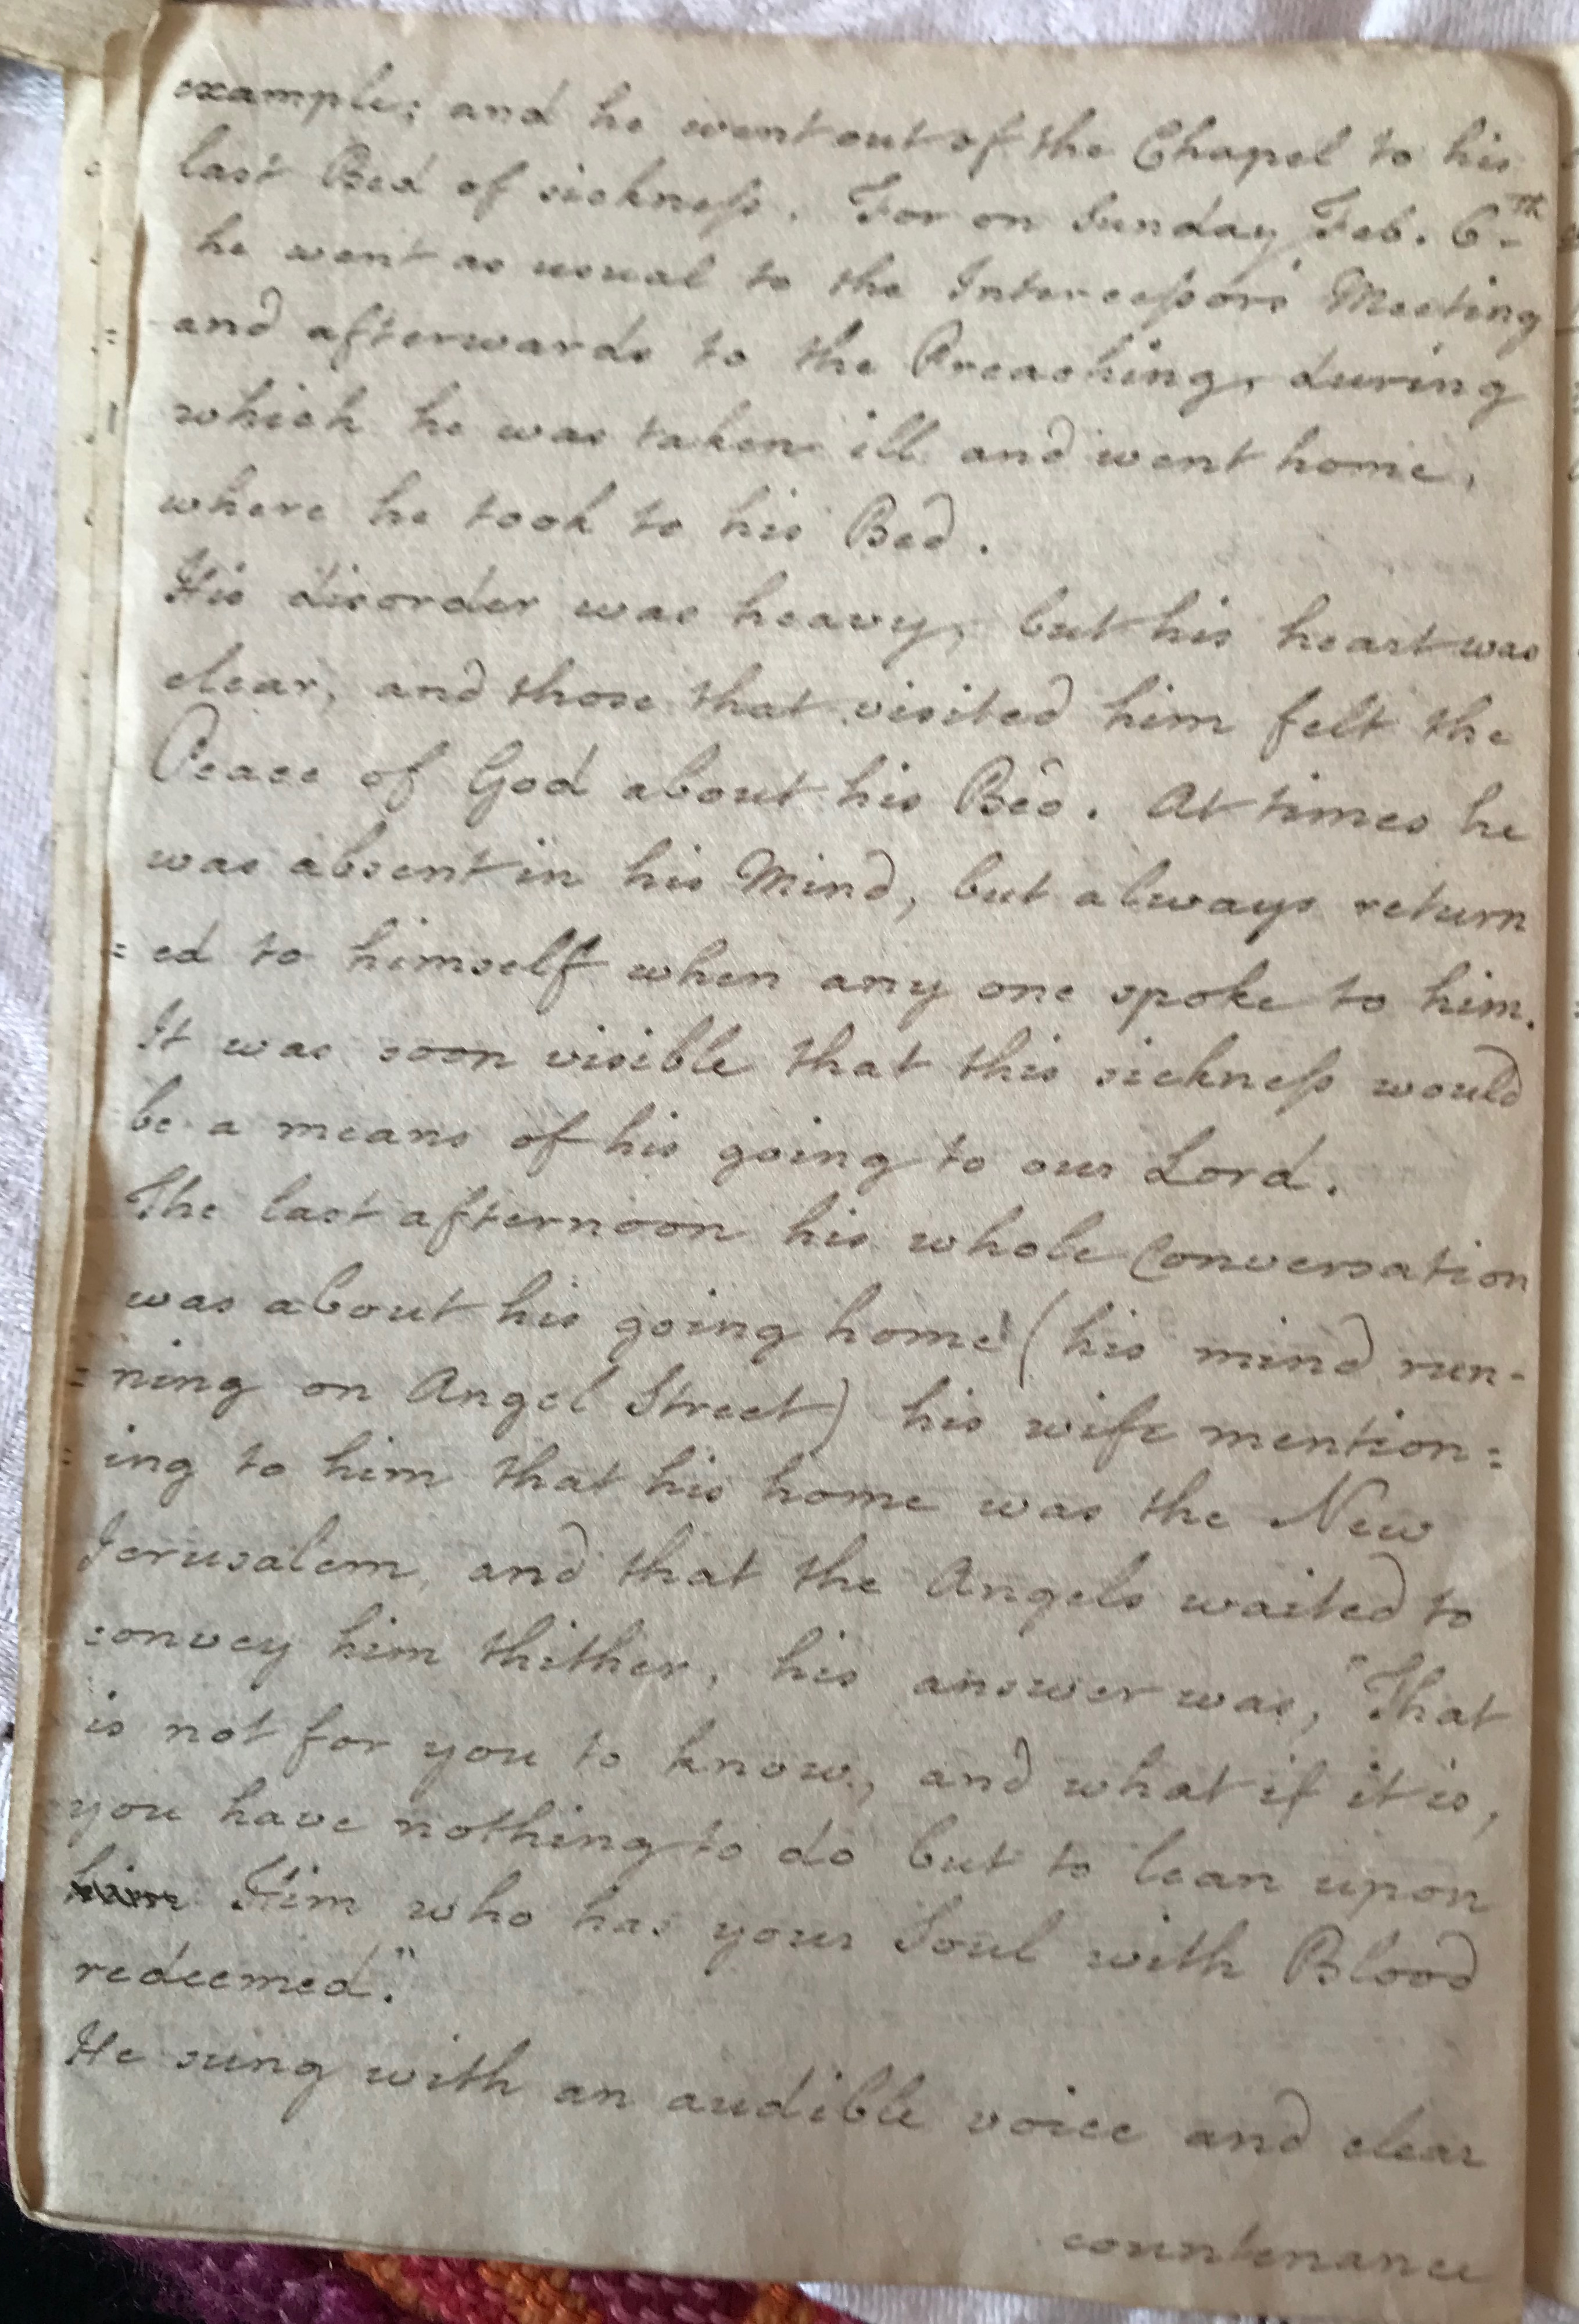 example; and he went out of the Chapel to his
last Bed of sickneſs. For on Sunday Feb. 6th
he went as usual to the Interceſsors Meeting
and afterwards to the Preaching, during
which he was taken ill and went home,
where he took to his Bed.
His disorder was heavy, but his heart was
clear, and those that visited him felt the
Peace of God about his Bed. At times he
was absent in his Mind, but always return
= ed to himself when any one spoke to him.
It was soon visible that this sickneſs would
be a means of his going to our Lord.
The last afternoon his whole Conversation
was about his going home (his mind run-
= ning on Angel Street) his wife mention=
= ing to him that his home was the New
Jerusalem, and that the Angels waited to
convey him thither, his answer was, "That
is not for you to know, and what if it is,
you have nothing to do but to lean upon
him Him who has your Soul with Blood
redeemed."
He sung with an audible voice and clear
countenance